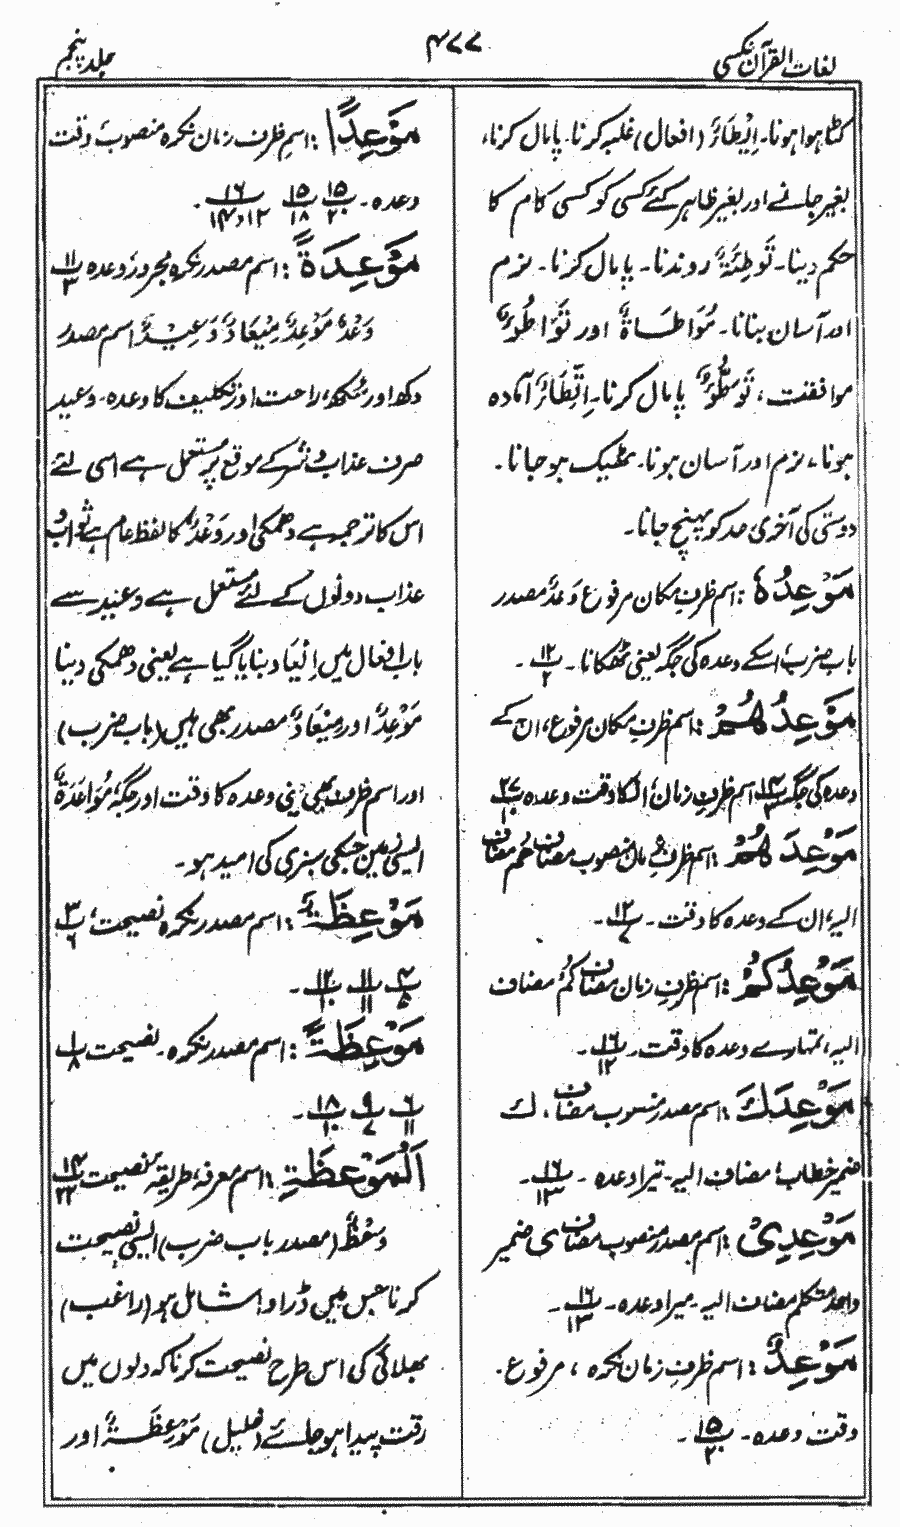 لغات القرآن نکسی
۴۷۷
جلد پنجم
کٹا ہوا ہونا۔ اِیْطَاءٌ (افعال) غلبہ کرنا۔ پامال کرنا،
بغیر جانے اور بغیر ظاہر کئے کسی کو کسی کام کا
حکم دینا۔ تَوْطِئَۃٌ روندنا۔ پامال کرنا۔ نرم
اور آسان بنانا۔ مُوَاطَاۃٌ اور تَوَاطُؤٌ
موافقت، تَوَطُّؤٌ پامال کرنا۔ اِتِّطَاءٌ آمادہ
ہونا، نرم اور آسان ہونا۔ ٹھیک ہو جانا۔
دوستی کی آخری حد کو پہنچ جانا۔
مَوْعِدُہٗ: اسم ظرف مکان مرفوع وَعْدٌ مصدر
باب ضرب، اسکے وعدہ کی جگہ یعنی ٹھکانا۔ ۱۲/۲ ۔
مَوْعِدُھُمْ: اسم ظرف مکان مرفوع، ان کے
وعدہ کی جگہ ۱۴/۳، اسم ظرف زمان، انکا وقت وعدہ ۲۷/۱۰
مَوْعِدَ ھُمْ: اسم ظرف زمان منصوب مضاف ھُم مضاف
الیہ، ان کے وعدہ کا وقت۔ ۱۲/۷ ۔
مَوْعِدُکُمْ: اسم ظرف زمان مضاف کُمْ مضاف
الیہ، تمہارے وعدہ کا وقت۔ ۱۶/۱۲ ۔
مَوْعِدَكَ: اسم مصدر منصوب مضاف، ك
ضمیر خطاب مضاف الیہ۔ تیرا وعدہ ۔ ۱۶/۱۳ ۔
مَوْعِدِیْ: اسم مصدر منصوب مضاف ی ضمیر
واحد متکلم مضاف الیہ۔ میرا وعدہ۔ ۱۶/۱۳ ۔
مَوْعِدٌ: اسم ظرف زمان نکرہ، مرفوع۔
وقت وعدہ۔ ۱۵/۲۰ ۔
مَوْعِدًا: اسم ظرف زمان نکرہ منصوب وقت
وعدہ۔ ۱۵/۲۰ ۱۵/۱۸ ۱۶/۱۲و۱۴ ۔
مَوْعِدَۃٌ: اسم مصدر نکرہ مجرور، وعدہ ۱۱/۳
وَعْدٌ مَوْعِدٌ مِیْعَادٌ وَعِیْدٌ اسم مصدر
دکھ اور سکھ، راحت اور تکلیف کا وعدہ۔ وعید
صرف عذاب و شر کے موقع پر مستعمل ہے اسی لئے
اس کا ترجمہ ہے دھمکی اور وَعْدٌ کا لفظ عام ہے ثواب و
عذاب دونوں کے لئے مستعمل ہے وعید سے
باب افعال میں اِیْعَاد بنایا گیا ہے یعنی دھمکی دینا
مَوْعِدٌ اور مِیْعَادٌ مصدر بھی ہیں (باب ضرب)
اور اسم ظرف بھی یعنی وعدہ کا وقت اور جگہ، مُوَاعَدَۃٌ
ایسی زمین جسکی سبزی کی امید ہو۔
مَوْعِظَۃٌ: اسم مصدر نکرہ نصیحت، ۳/۶
۴/۵ ۱۱/۱۱ ۱۲/۱۰ ۔
مَوْعِظَۃً: اسم مصدر نکرہ۔ نصیحت ۱/۸
۶/۱۱ ۹/۷ ۱۸/۱۰ ۔
اَلْمَوْعِظَۃِ: اسم معرفہ، طریقہ نصیحت ۱۴/۲۲
وَعْظٌ (مصدر باب ضرب) ایسی نصیحت
کرنا جس میں ڈراوا شامل ہو (راغب)
بھلائی کی اس طرح نصیحت کرنا کہ دلوں میں
رقت پیدا ہو جائے (خلیل) مَوْعِظَۃٌ اور